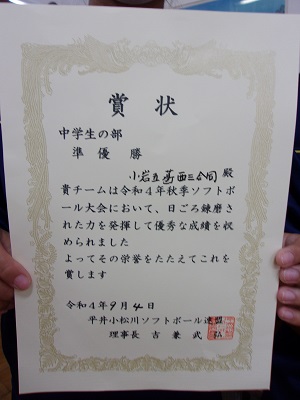 賞状
中学生の部
準優勝
小岩立葛西三合同 殿
貴チームは令和4年秋季ソフトボ
ール大会において、日ごろ錬磨さ
れた力を発揮して優秀な成績を収
められました
よってその栄誉をたたえてこれを
賞します
令和4年9月4日
平井小松川ソフトボール連盟
理事長 吉兼武弘